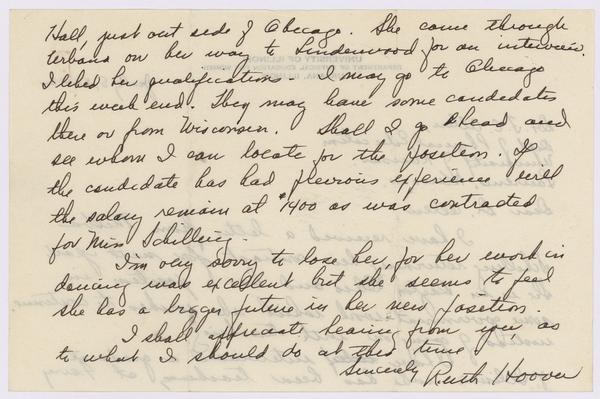 Hall, just out side of Chicago. She came through
Urbana on her way to Lindenwood for an interview.
I liked her qualifications. I may go to Chicago
this week end. They may have some candidates
there or from Wisconsin. Shall I go ahead and
see whom I can locate for the position. If
the candidate has had previous experience will
the salary remain at $1400 as was contracted
for Miss Schilling.
I'm very sorry to lose her, for her work in
dancing was excellent but she seems to feel
she has a bigger future in her new position.
I shall appreciate hearing from you, as
to what I should do at this time.
Sincerely Ruth Hoover